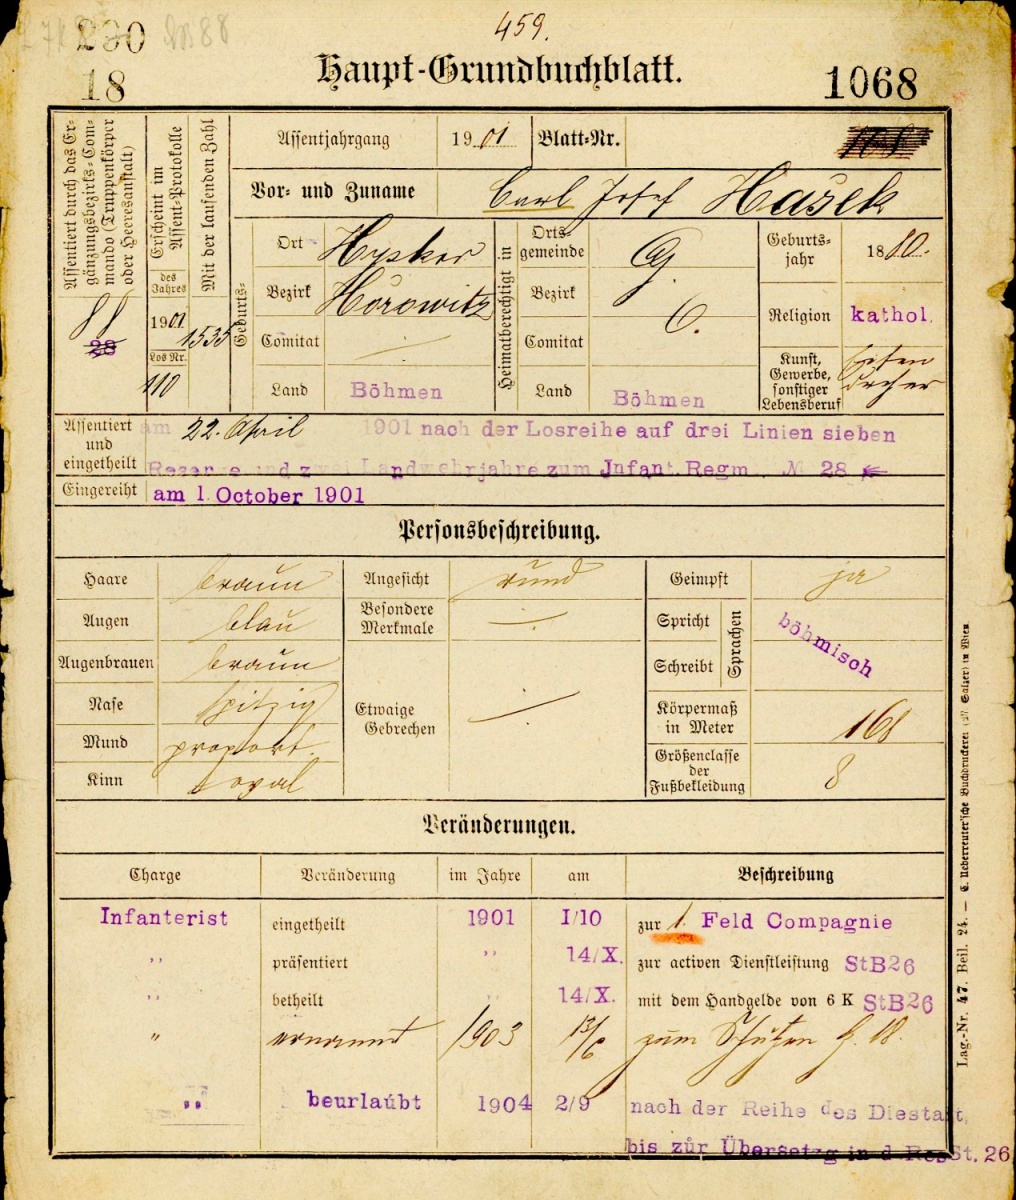 290
18
459.
Haupt-Grundbuchblatt.
1068
Assentiert durch das Er-
gänzungsbezirks-Com-
mando (Truppenkörper
oder Heeresanstalt)
88
28
Erscheint im
Assent-Protokolle
des
Jahres
1901
Los Nr.
110
Mit der laufenden Zahl
1535
Assentjahrgang 1901 Blatt-Nr.
Vor- und Zuname Carl Josef Hašek
Geburts-
Ort Hyskov
Bezirk Hořowitz
Comitat
Land Böhmen
Heimatberechtigt in
Orts-
gemeinde
Bezirk
Comitat
Land Böhmen
Geburts-
jahr 1880.
Religion kathol.
Kunst,
Gewerbe,
sonstiger
Lebensberuf
Eisen
dreher
Assentiert
und
eingetheilt
am 22. April 1901 nach der Losreihe auf drei Linien sieben
Reserve und zwei Landwehrjahre zum Infant. Regm. № 28
Eingereiht am 1. October 1901
Personsbeschreibung.
Haare braun
Augen blau
Augenbrauen braun
Nase spitzig
Mund proport.
Kinn oval
Angesicht rund
Besondere
Merkmale
Etwaige
Gebrechen
Geimpft ja
Spricht
Schreibt
Sprachen
böhmisch
Körpermaß
in Meter 168
Größenclasse
der
Fußbekleidung 8
Veränderungen.
Charge Veränderung im Jahre am Beschreibung
Infanterist eingetheilt 1901 1/10 zur 1. Feld Compagnie
,, präsentiert ,, 14/X. zur activen Dienstleistung StB26
,, betheilt ,, 14/X. mit dem Handgelde von 6 K StB26
" ernannt 1903 13/6 zum
,, beurlaubt 1904 2/9 nach der Reihe des Diestalt,
bis zur Übersetzg in d ResSt. 26
Lag.-Nr. 47. Beil. 24. — C. Ueberreuter'sche Buchdruckerei (M. Salzer) in Wien.